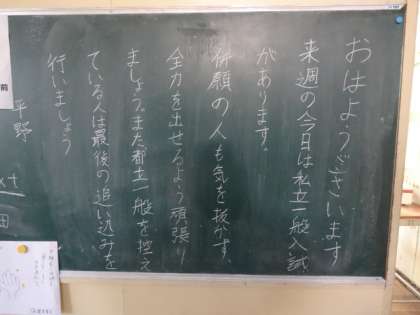 おはようございます
来週の今日は私立一般入試
があります。
併願の人も気を抜かず、
全力を出せるよう頑張り
ましょう。また都立一般を控え
ている人は最後の追い込みを
行いましょう
平野
前
田